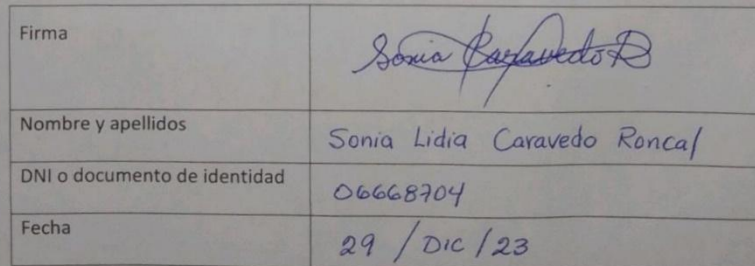 Firma Sonia Caravedo R
Nombre y apellidos Sonia Lidia Caravedo Roncal
DNI o documento de identidad 06668704
Fecha 29 / DIC / 23